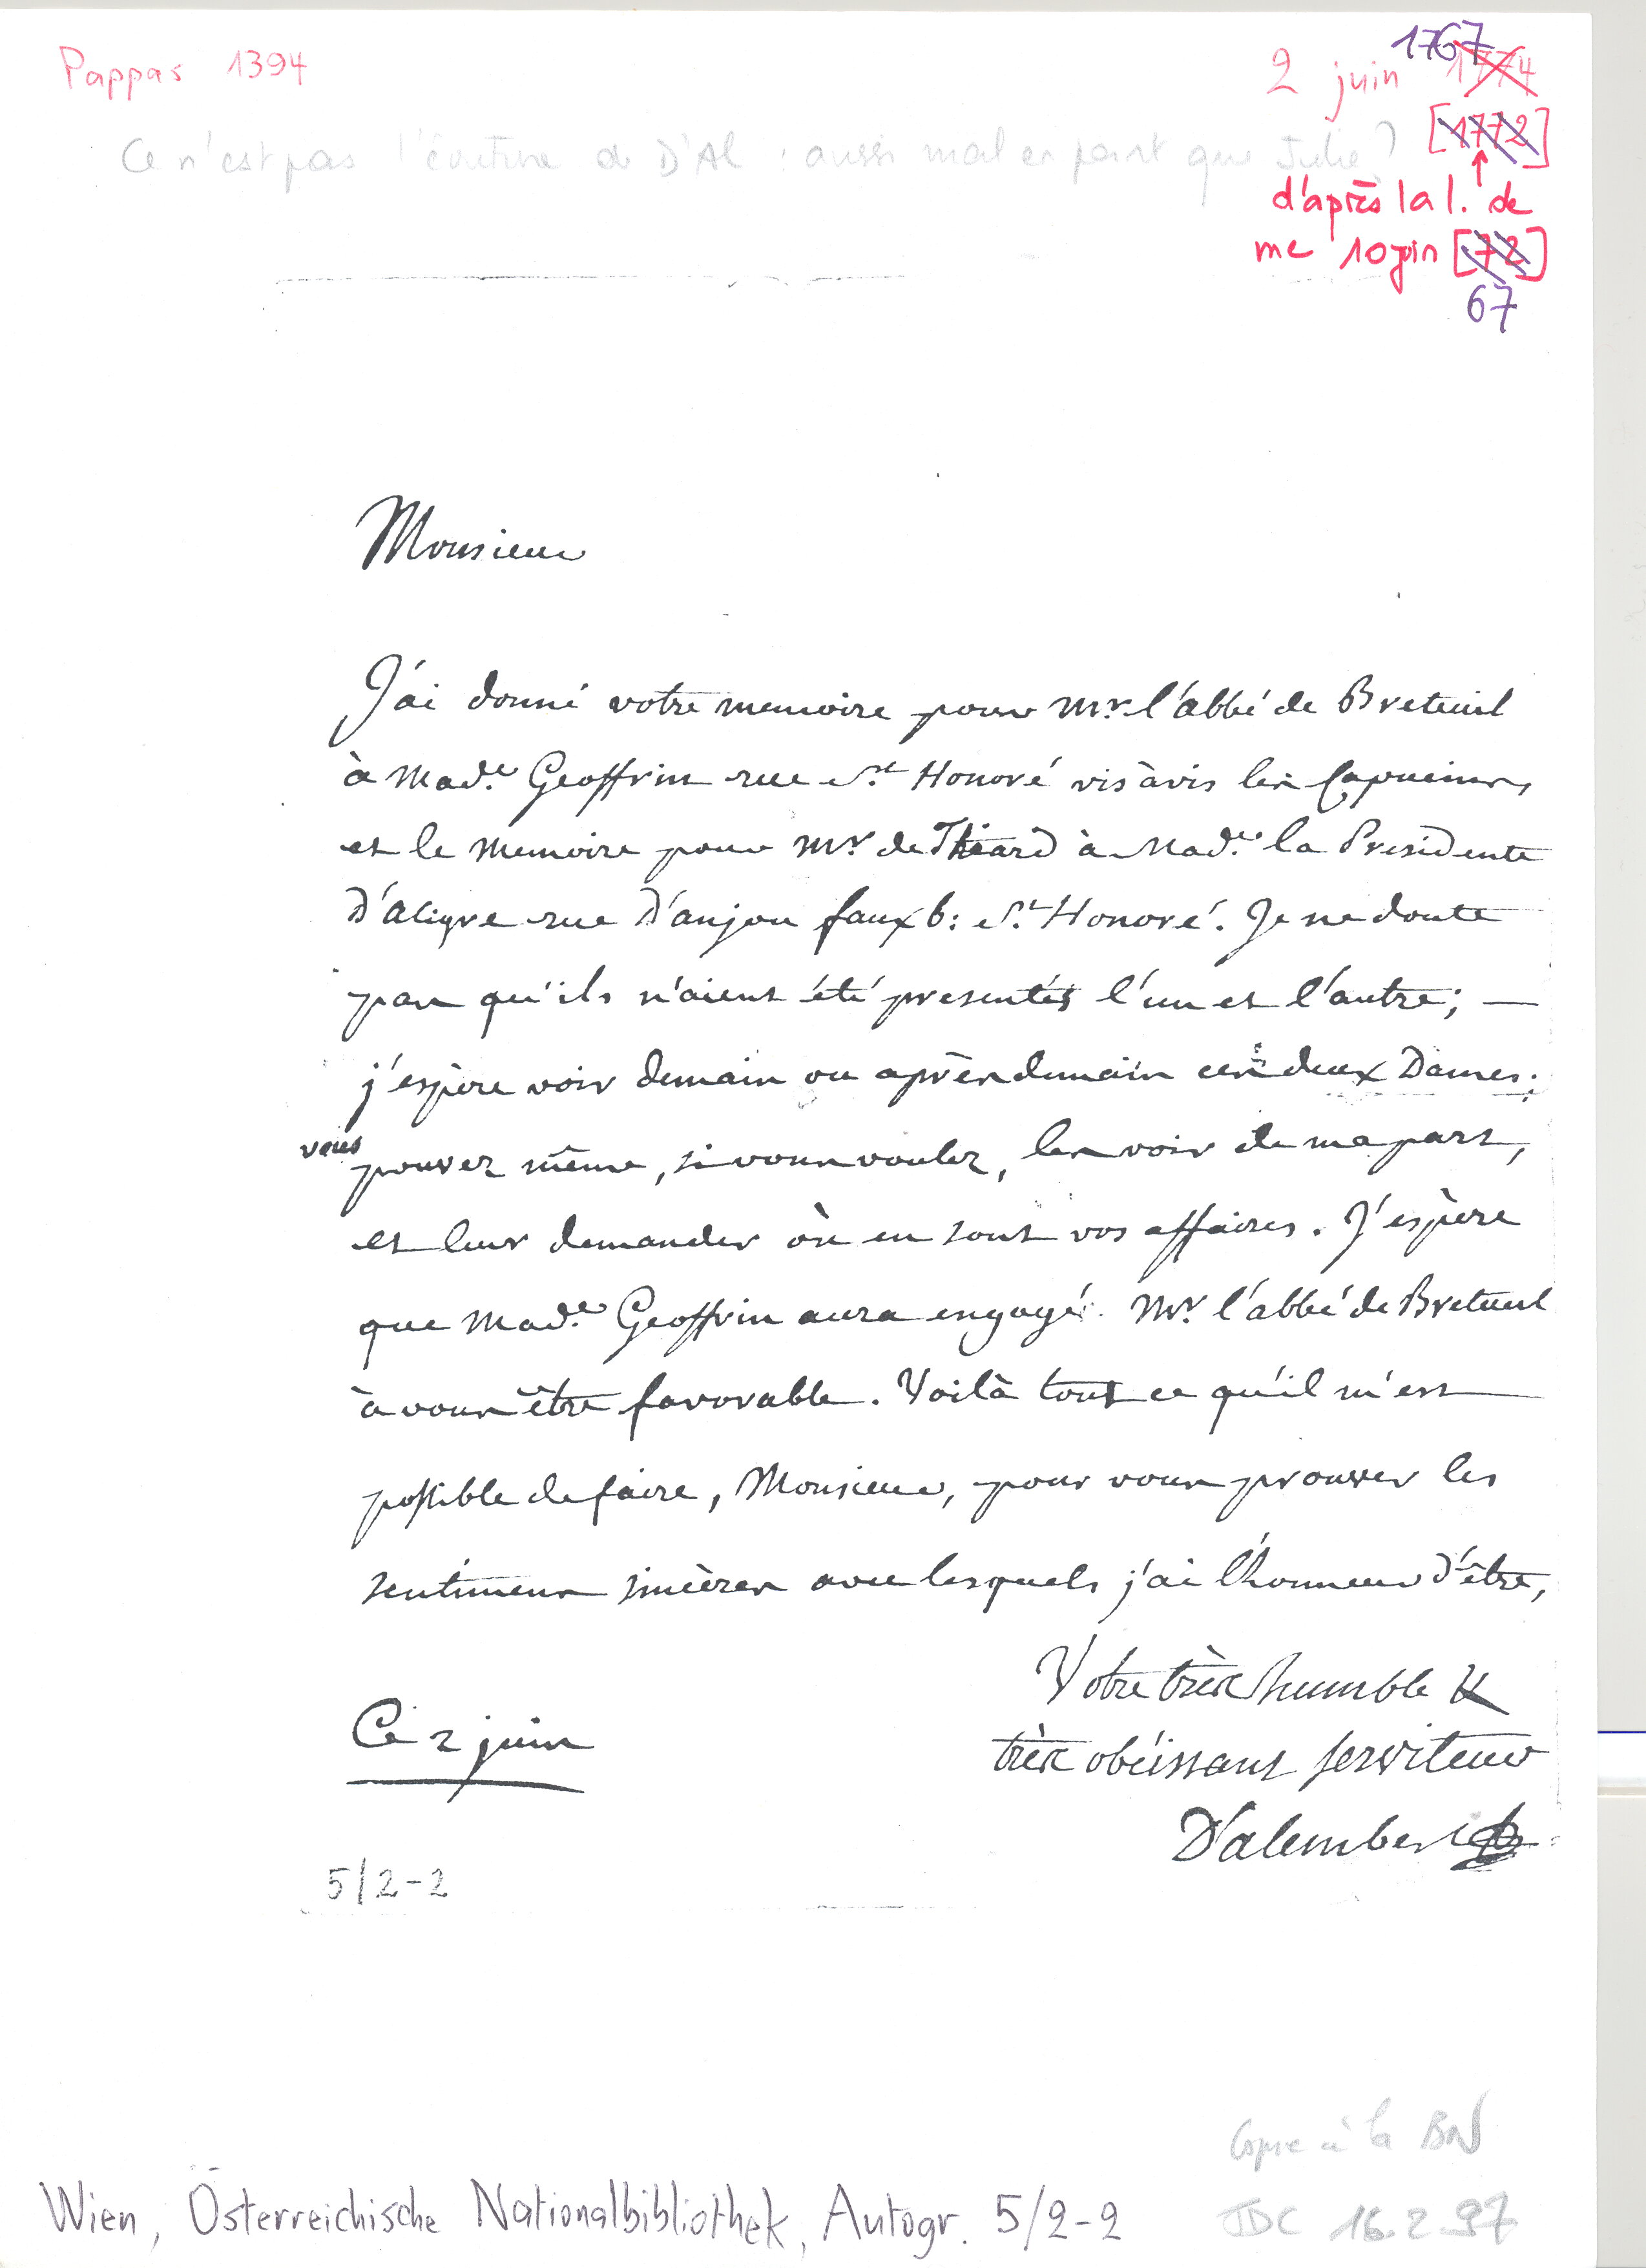 Pappas 1394
2 juin 1767 1774
[1772]
Ce n'est pas l'écriture de D'Al : aussi mal en point que Julie ?
d'après la l. de
me 10 juin [72]
67
Monsieur
J'ai donné votre memoire pour Mr. l'abbé de Breteuil
à Made. Geoffrin rue St. Honoré vis à vis les Capucins,
et le memoire pour Mr. de Thiard à Made. la Presidente
D'aligre rue D'anjou fauxb: St. Honoré. Je ne doute
pas qu'ils n'aient été presentés l'un et l'autre; —
j'espère voir demain ou après demain ces deux Dames;
vous pouvez même, si vous voulez, les voir de ma part,
et leur demander où en sont vos affaires. J'espère
que Made. Geoffrin aura engagé Mr. l'abbé de Breteuil
à vous être favorable. Voilà tout ce qu'il m'est
possible de faire, Monsieur, pour vous prouver les
sentimens sincères avec lesquels j'ai l'honneur d'être,
Votre très humble &
très obéissant serviteur
Ce 2 juin
D'alembert
5/2-2
Copie à la BN
Wien, Österreichische Nationalbibliothek, Autogr. 5/2-2
JDC 16.2.97